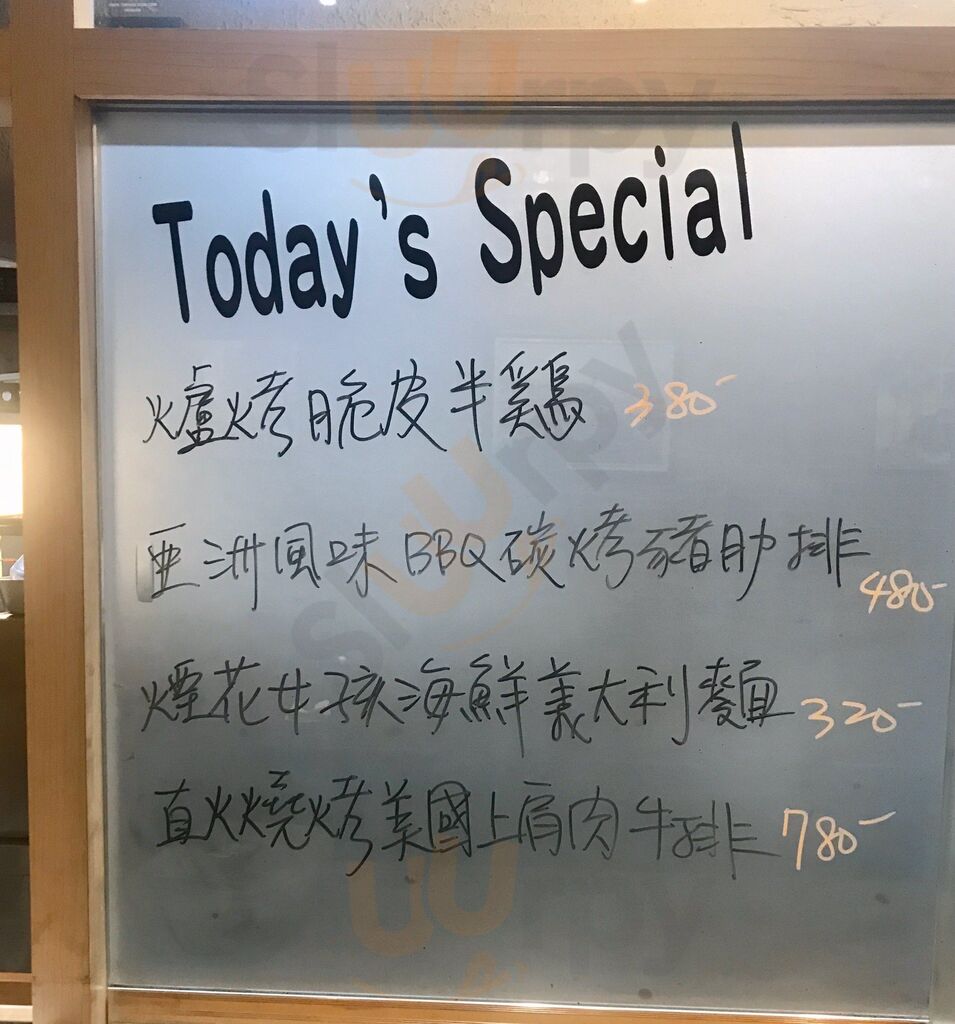 Today's Special
爐烤脆皮半鷄 380-
亞洲風味BBQ碳烤豬肋排 480-
煙花女孩海鮮義大利麵 320-
直火燒烤美國上肩肉牛排 780-
sluurpy
sluurpy
sluurpy